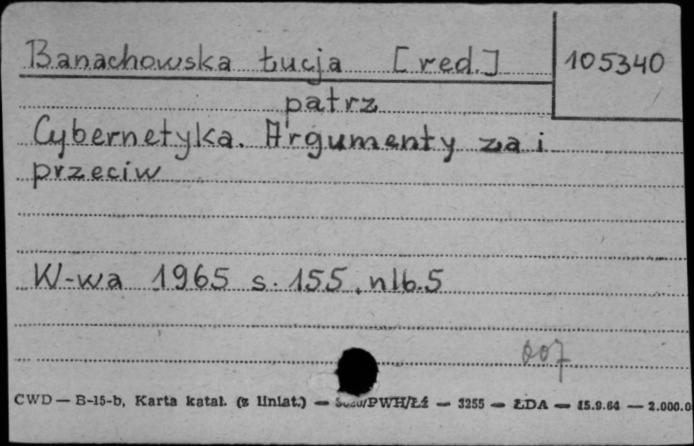 Banachowska Łucja [red.] 105340
patrz
Cybernetyka. Argumenty za i
przeciw
W-wa 1965 s. 155, nlb. 5
007
CWD — B-15-b, Karta katal. (z liniat.) — /PWH/Łź — 3255 — ŁDA — 15.9.64 — 2.000.0